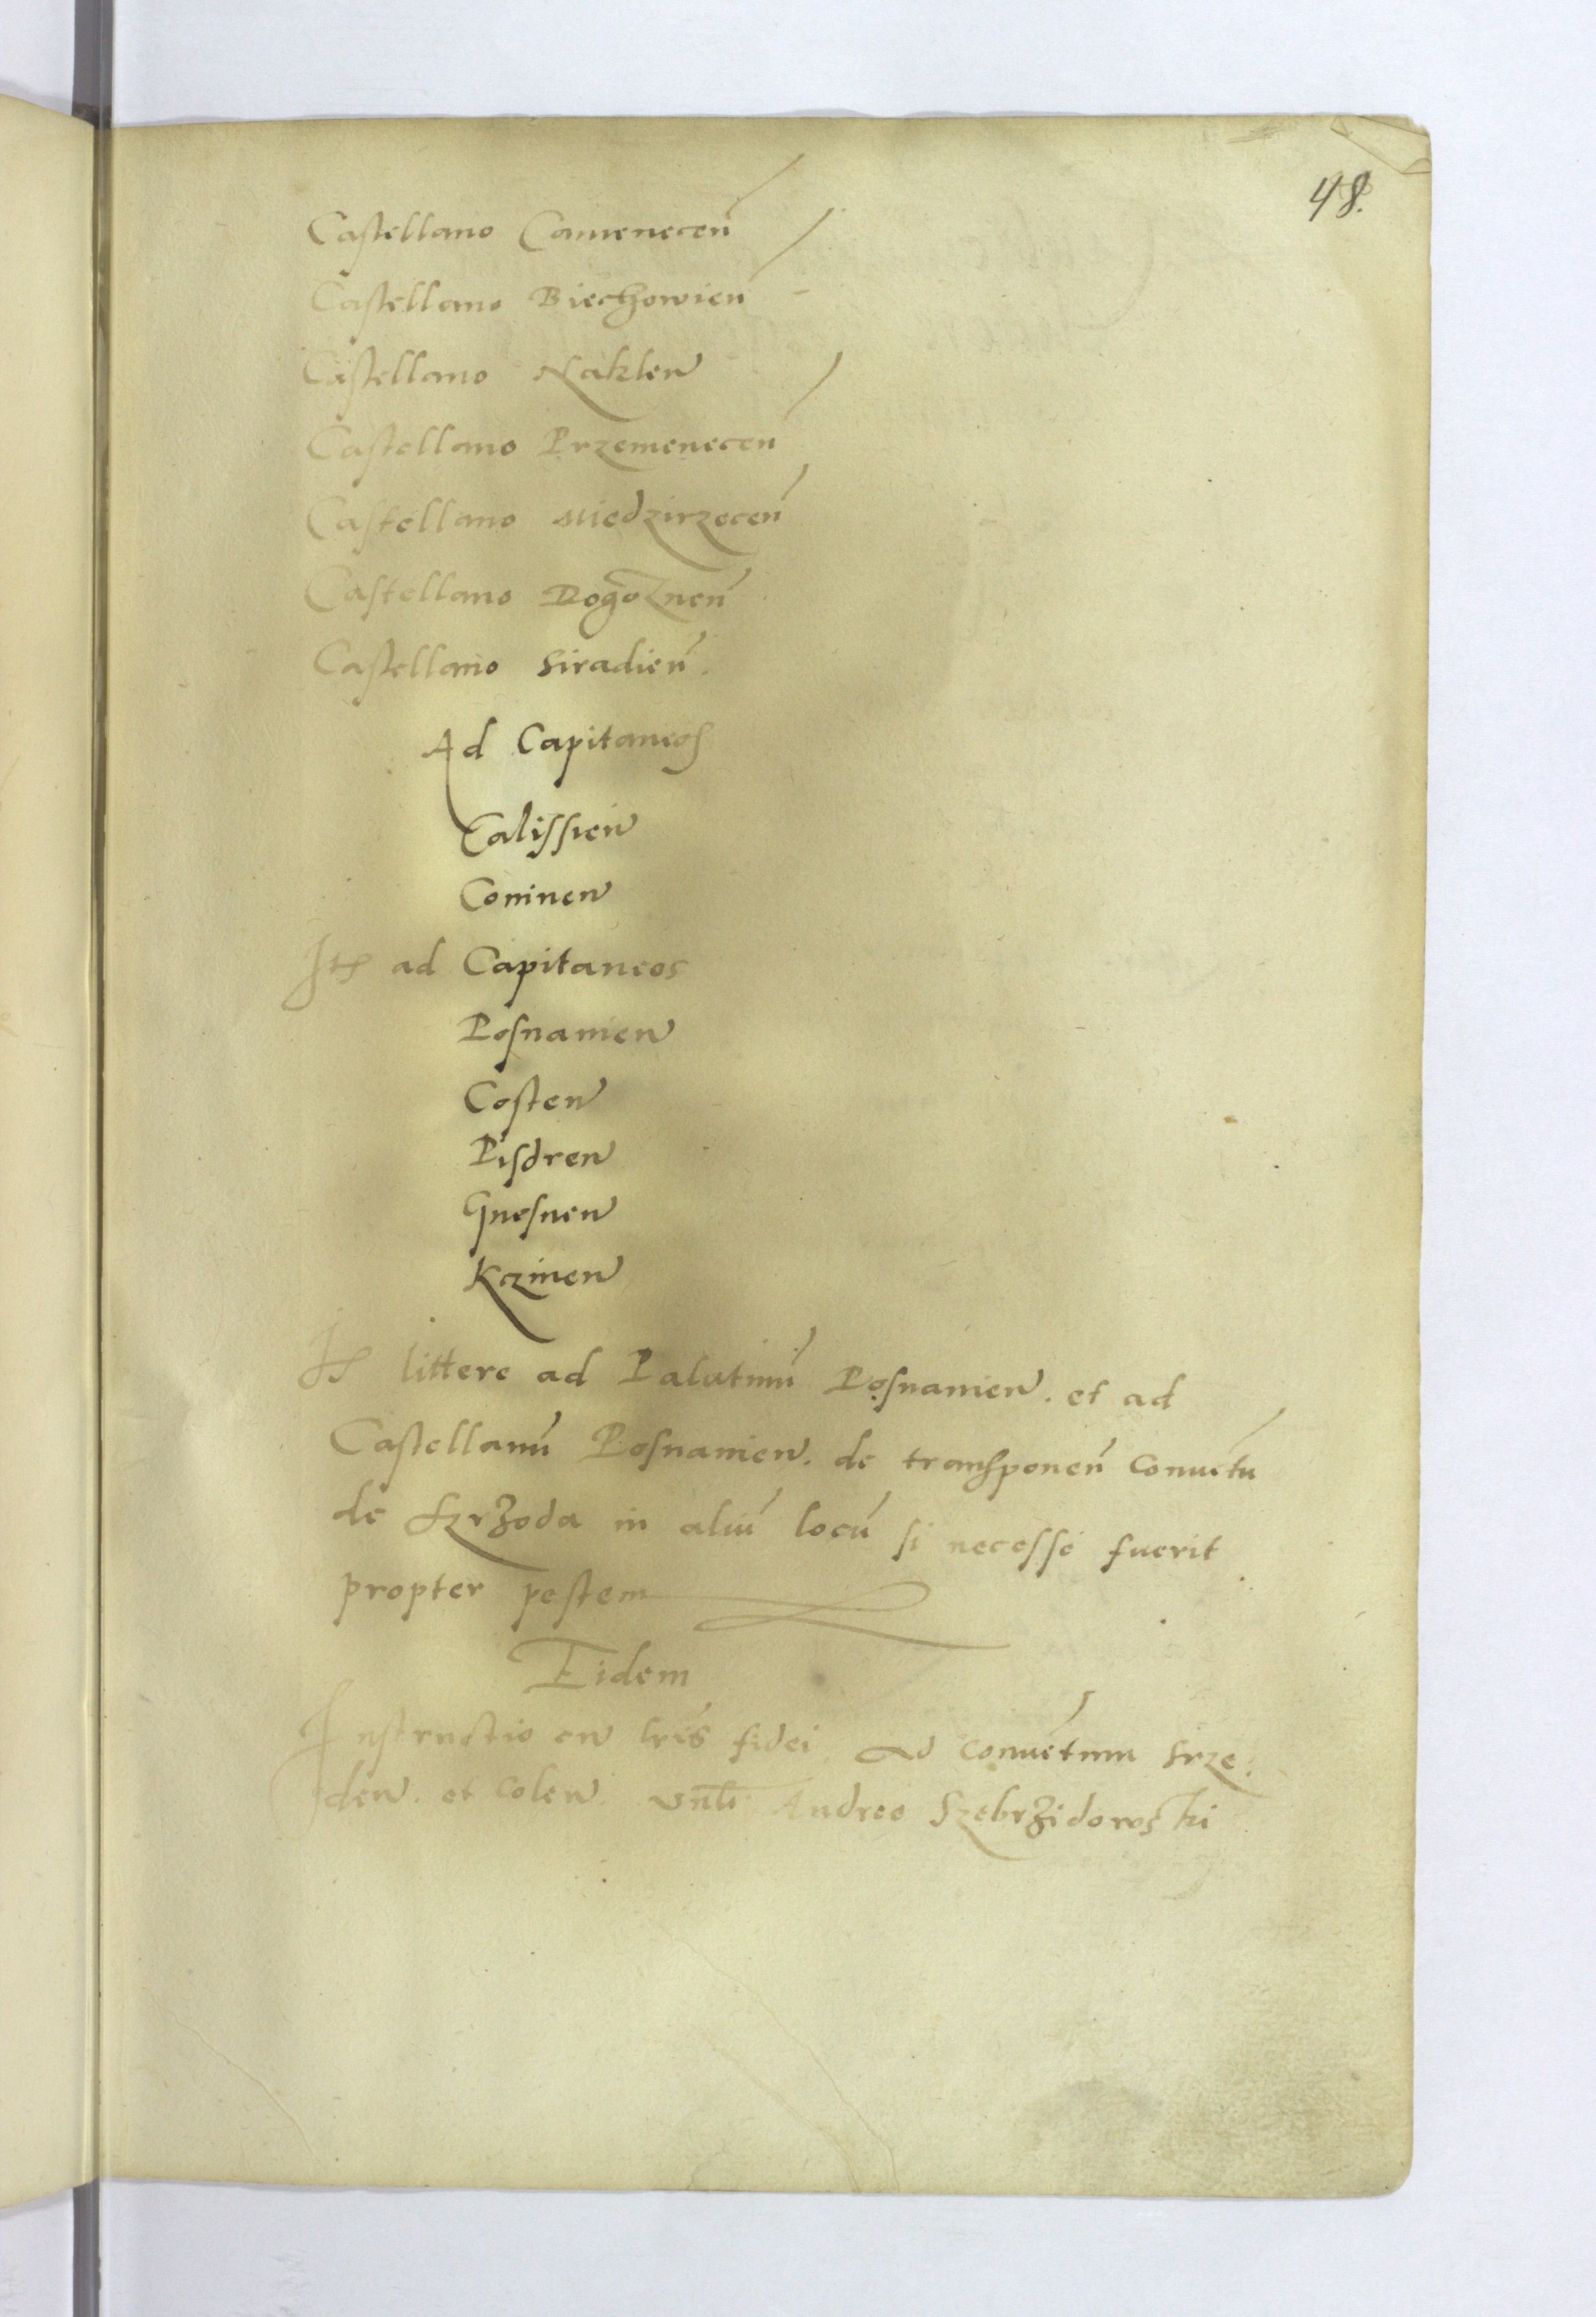 48.
Castellano Camenecen̄
Castellano Biechowien̄
Castellano Naklen
Castellano Przemenecen̄
Castellano Miedzirzecen̄
Castellano Rogoznen̄
Castellano Siradien̄.
Ad Capitaneos
Calissien
Coninen
Itē ad Capitaneos
Posnanien
Costen
Pisdren
Gnesnen
Kczinen
Itē littere ad Palatinū Posnanien. et ad
Castellanū Posnanien. de transponen̄ Conuētu
de Srzoda in aliū locū si necesse fuerit
propter pestem
Eidem
Instructio cū lrīs fidei ad conuētum Srze,
den. et Colen. Andree Szebrzidowski